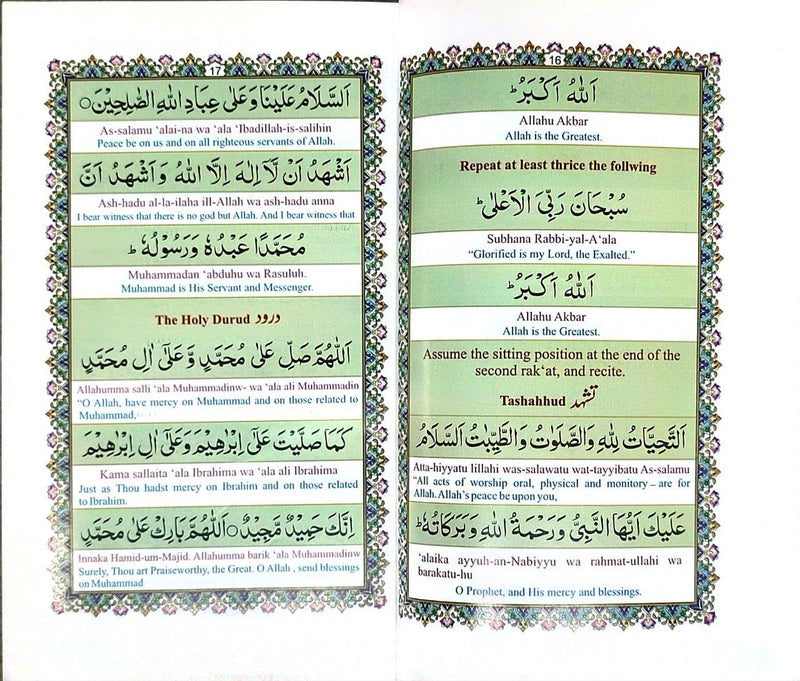 16
اَللّٰهُ اَكْبَرُ ؕ
Allahu Akbar
Allah is the Greatest.
Repeat at least thrice the follwing
سُبْحَانَ رَبِّيَ الْاَعْلٰى ؕ
Subhana Rabbi-yal-A‘ala
“Glorified is my Lord, the Exalted.”
اَللّٰهُ اَكْبَرُ ؕ
Allahu Akbar
Allah is the Greatest.
Assume the sitting position at the end of the
second rak‘at, and recite.
Tashahhud تشہد
اَلتَّحِيَّاتُ لِلّٰهِ وَالصَّلَوٰتُ وَالطَّيِّبٰتُ اَلسَّلَامُ
Atta-hiyyatu lillahi was-salawatu wat-tayyibatu As-salamu
"All acts of worship oral, physical and monitory – are for
Allah. Allah’s peace be upon you,
عَلَيْكَ اَيُّهَا النَّبِيُّ وَرَحْمَةُ اللّٰهِ وَبَرَكَاتُهٗ ؕ
‘alaika ayyuh-an-Nabiyyu wa rahmat-ullahi wa
barakatu-hu
O Prophet, and His mercy and blessings.
17
اَلسَّلَامُ عَلَيْنَا وَعَلٰى عِبَادِ اللّٰهِ الصّٰلِحِيْنَ ○
As-salamu ‘alai-na wa ‘ala ‘Ibadillah-is-salihin
Peace be on us and on all righteous servants of Allah.
اَشْهَدُ اَنْ لَّآ اِلٰهَ اِلَّا اللّٰهُ وَاَشْهَدُ اَنَّ
Ash-hadu al-la-ilaha ill-Allah wa ash-hadu anna
I bear witness that there is no god but Allah. And I bear witness that
مُحَمَّدًا عَبْدُهٗ وَرَسُوْلُهٗ ؕ
Muhammadan ‘abduhu wa Rasuluh.
Muhammad is His Servant and Messenger.
The Holy Durud درود
اَللّٰهُمَّ صَلِّ عَلٰى مُحَمَّدٍ وَّعَلٰٓى اٰلِ مُحَمَّدٍ
Allahumma salli ‘ala Muhammadinw- wa ‘ala ali Muhammadin
“O Allah, have mercy on Muhammad and on those related to
Muhammad,
كَمَا صَلَّيْتَ عَلٰٓى اِبْرٰهِيْمَ وَعَلٰٓى اٰلِ اِبْرٰهِيْمَ
Kama sallaita ‘ala Ibrahima wa ‘ala ali Ibrahima
Just as Thou hadst mercy on Ibrahim and on those related
to Ibrahim.
اِنَّكَ حَمِيْدٌ مَّجِيْدٌ ○ اَللّٰهُمَّ بَارِكْ عَلٰى مُحَمَّدٍ
Innaka Hamid-um-Majid. Allahumma barik ‘ala Muhammadinw
Surely, Thou art Praiseworthy, the Great. O Allah , send blessings
on Muhammad